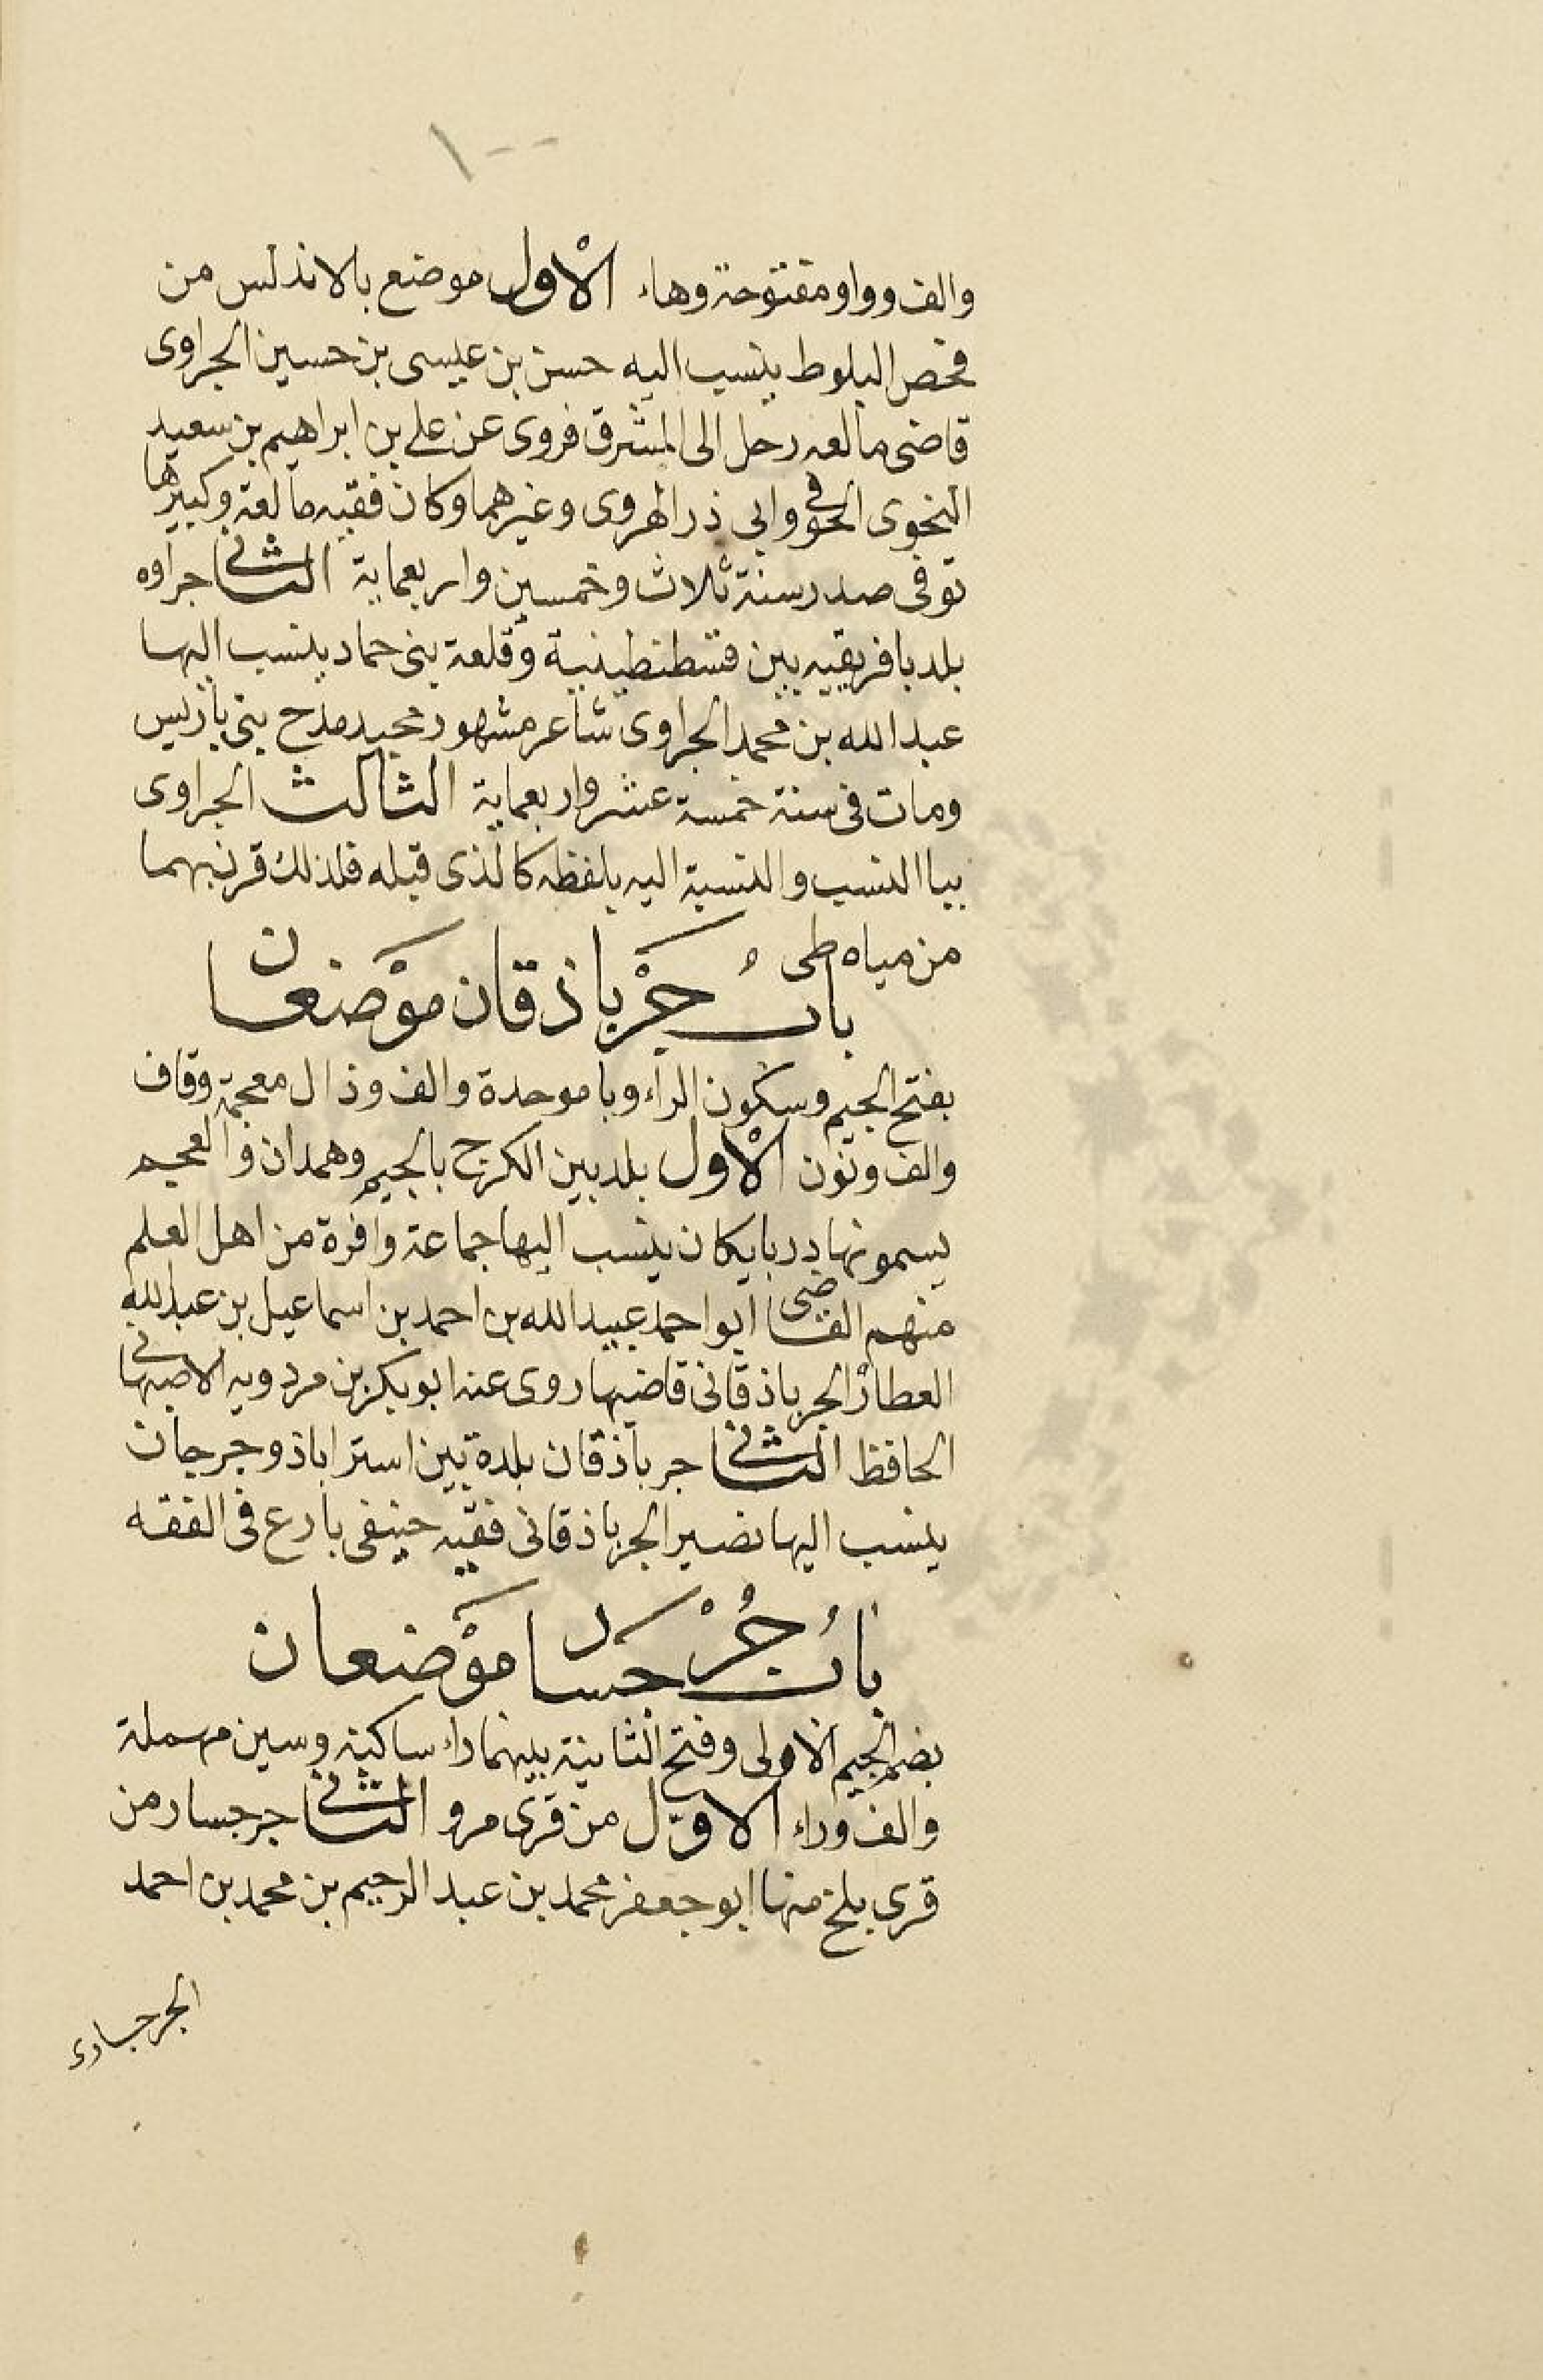 والف وواو مفتوحة وهاء الأول موضع بالاندلس من
فحص البلوط ينسب اليه حسن بن عيسى بن حسين الجراوى
قاضى مالعه رحل الى المشرق فروى عن على بن ابراهيم بن سعيد
النحوى الحوفى وابى ذر الهروى وغيرهما وكان فقيه مالعة وكبيرها
توفى صدر سنة ثلاث وخمسين واربعماية الثانى جراوه
بلد بافريقيه بين قسطنطينية وقلعة بنى حماد ينسب اليها
عبد الله بن محمد الجراوى شاعر مشهور مجيد مدح بنى باديس
ومات فى سنة خمسة عشر واربعماية الثالث الجراوى
بيا النسب والنسبة اليه بلفظه كالذى قبله فلذلك قرنبهما
من مياه طى
بابُ جَرْباذقان مَوْضعان
بفتح الجيم وسكون الراء وبا موحدة والف وذال معجمة وقاف
والف ونون الأول بلد بين الكرج بالجيم وهمدان والعجم
يسمونها دربايكان ينسب اليها جماعة وافرة من اهل العلم
منهم القاضى ابو احمد عبيد الله بن احمد بن اسماعيل بن عبد الله
العطار الجرباذقانى قاضيها روى عنه ابو بكر بن مردويه الاصبهانى
الحافظ الثانى جرباذقان بلدة بين استراباذ وجرجان
ينسب اليها نصير الجرباذقانى فقيه حنيفى بارع فى الفقه
بابُ جُرْجَسار مَوْضعان
بضم الجيم الاولى وفتح الثانية بينهما راء ساكنة وسين مهملة
والف وراء الاوّل من قرى مرو الثانى جرجسار من
قرى بلخ منها ابو جعفر محمد بن عبد الرحيم بن محمد بن احمد
الجرجسارى